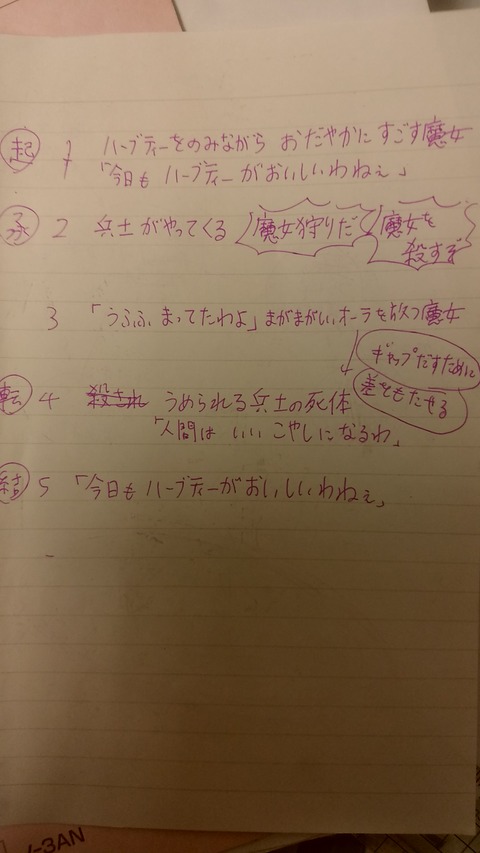 起 1 ハーブティーをのみながら おだやかに すごす魔女
「今日も ハーブティーがおいしいわねぇ」
承 2 兵士がやってくる 魔女狩りだ 魔女を
殺すぞ
3 「うふふ まってたわよ」まがまがしいオーラを放つ魔女
↓ ギャップだすために
差をもたせる
転 4 殺され うめられる兵士の死体
「人間は いい こやしになるわ」
結 5 「今日もハーブティーがおいしいわねぇ」
-3AN